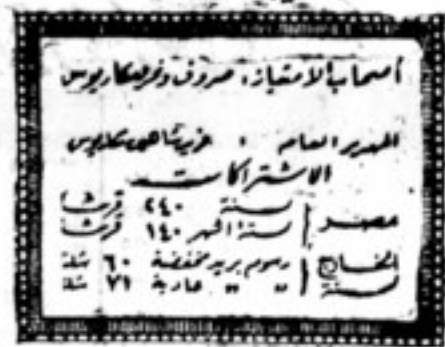 أصحاب الامتياز: صروف ونمر ومكاريوس
المدير العام :
الاشتراكات
مصر سنة ٢٤٠ قرشا
ستة اشهر ١٤٠ قرشا
الخارج رسوم بريد مخفضة ٦٠ شلنا
سنة " " عادية ٧١ شلنا